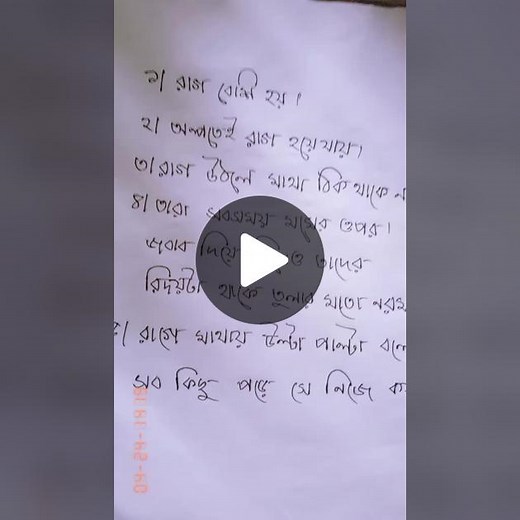 ১। রাগ বেশি হয়।
২। অল্পতেই রাগ হয়ে যায়।
৩। রাগ উঠলে মাথা ঠিক থাকে ন
৪। তারা সবসময় মুখের ওপর।
জবাব দিয়ে ও তাদের
রিদয়টা থাকে তুলার মতো নরম
৫। রাগে মাথায় উল্টা পাল্টা বলে
সব কিছু পরে সে নিজে ক